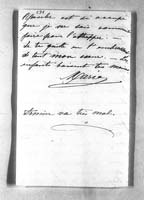 est si occupé
que je ne sais comment
faire pour l'attraper.
Je te quitte en t'embrassant
de tout mon cœur. Les
enfants baisent tes mains
Maria
va très mal.